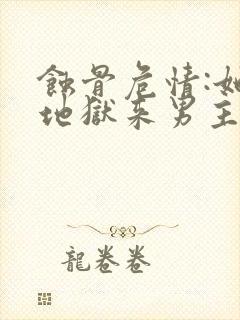 蝕骨危情:她
地獄來男主
龍卷卷